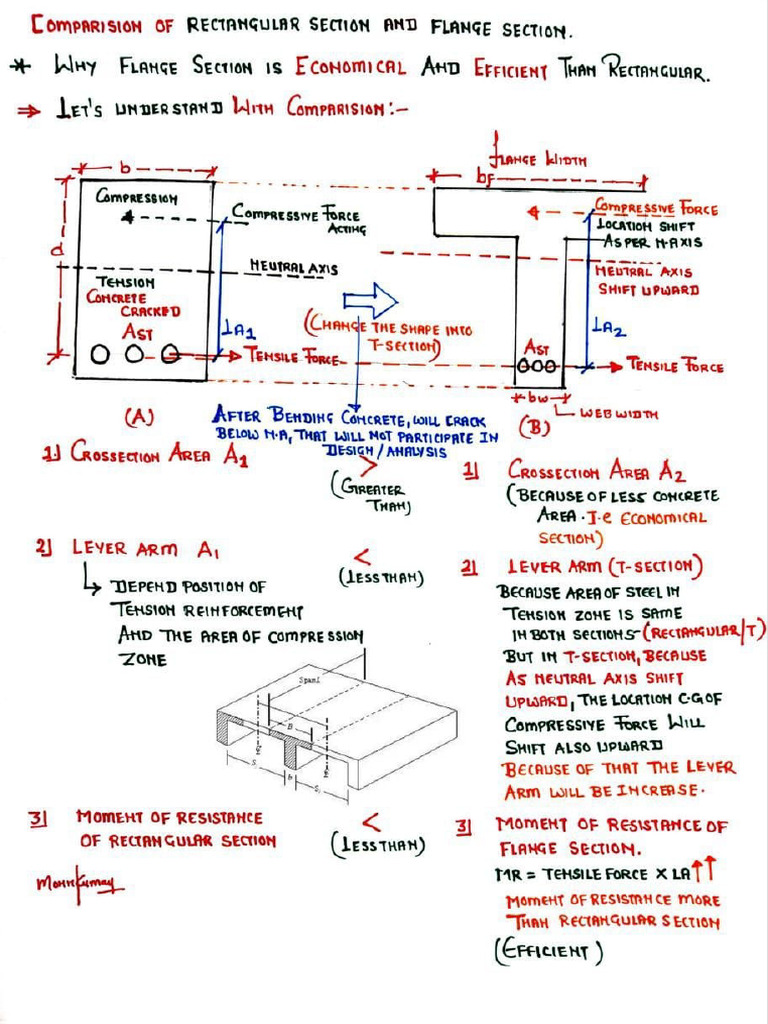 COMPARISION OF RECTANGULAR SECTION AND FLANGE SECTION.
* WHY FLANGE SECTION IS ECONOMICAL AND EFFICIENT THAN RECTANGULAR.
⇒ LET'S UNDERSTAND WITH COMPARISION:-
b
d
COMPRESSION
COMPRESSIVE FORCE
ACTING
NEUTRAL AXIS
TENSION
CONCRETE
CRACKED
AST
LA1
TENSILE FORCE
(CHANGE THE SHAPE INTO
T-SECTION)
FLANGE WIDTH
bF
COMPRESSIVE FORCE
LOCATION SHIFT
AS PER N-AXIS
NEUTRAL AXIS
SHIFT UPWARD
LA2
AST
TENSILE FORCE
bw
WEB WIDTH
(A)
AFTER BENDING CONCRETE, WILL CRACK
BELOW N.A, THAT WILL NOT PARTICIPATE IN
DESIGN/ANALYSIS
(B)
1] CROSSECTION AREA A1
>
(GREATER
THAN)
1] CROSSECTION AREA A2
(BECAUSE OF LESS CONCRETE
AREA. I.e ECONOMICAL
SECTION)
2] LEVER ARM A1
DEPEND POSITION OF
TENSION REINFORCEMENT
AND THE AREA OF COMPRESSION
ZONE
<
(LESS THAN)
2] LEVER ARM (T-SECTION)
BECAUSE AREA OF STEEL IN
TENSION ZONE IS SAME
IN BOTH SECTIONS (RECTANGULAR/T)
BUT IN T-SECTION, BECAUSE
AS NEUTRAL AXIS SHIFT
UPWARD, THE LOCATION C.G OF
COMPRESSIVE FORCE WILL
SHIFT ALSO UPWARD
BECAUSE OF THAT THE LEVER
ARM WILL BE INCREASE.
Span1
B
S
b
S
3] MOMENT OF RESISTANCE
OF RECTANGULAR SECTION
<
(LESS THAN)
3] MOMENT OF RESISTANCE OF
FLANGE SECTION.
MR = TENSILE FORCE X LA ↑↑
MOMENT OF RESISTANCE MORE
THAN RECTANGULAR SECTION
(EFFICIENT)